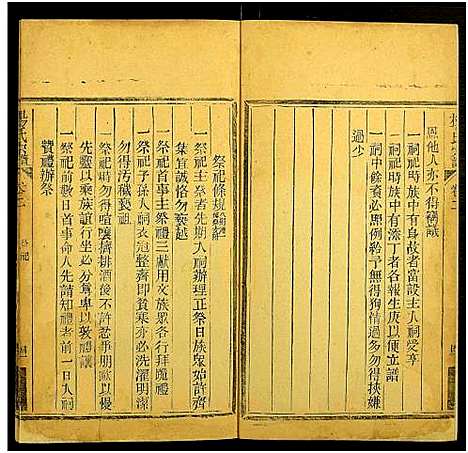 恩他人亦不得竊議
一祠祀時族中有身故者當設主入祠受享
一祠祀時族中有添丁者各報生庚以便立譜
一祠中餘資必照例給予無得狥情過多勿得挾嫌
過少
祭祀條規
一祭祀主祭者先期入祠辦理正祭日族眾始許齊
集宜誠恪勿褻越
一祭祀首事主祭三獻用文族眾各行拜跪禮
一祭祀子孫入祠衣冠整齊即貧寒亦必洗濯明潔
勿得汚穢褻祖
一祭祀時毋得喧嚷擠排酒後不許惹事朋歐以慢
先靈以乘族誼行坐必分尊卑以敦禮讓
一祭祀前數日首事命人先請知禮者前一日入祠
贊禮辦祭